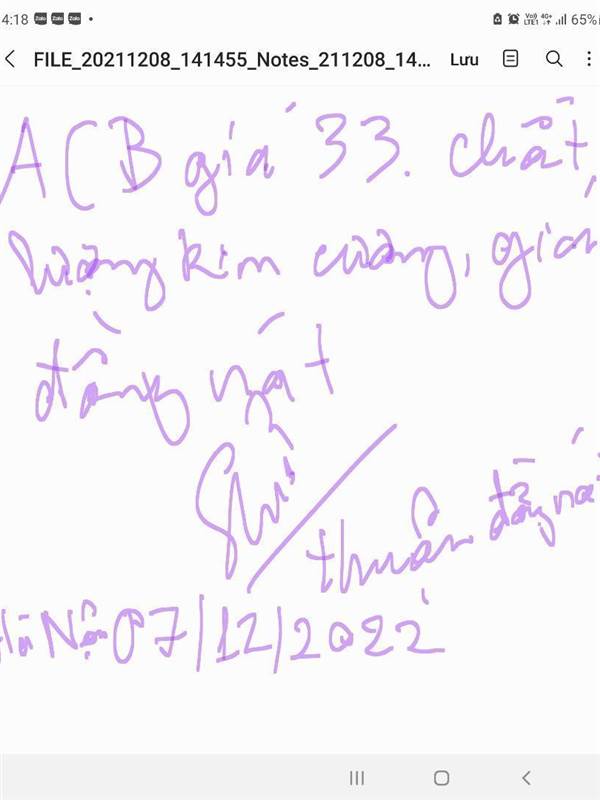 4:18 Zalo Zalo Zalo • Vo) 4G+ LTE1 65%
FILE_20211208_141455_Notes_211208_14... Lưu
ACB giá 33. Chất
lượng kim cương, giá
đồng nát
thuần đồng nát
Hà Nội 07/12/2022